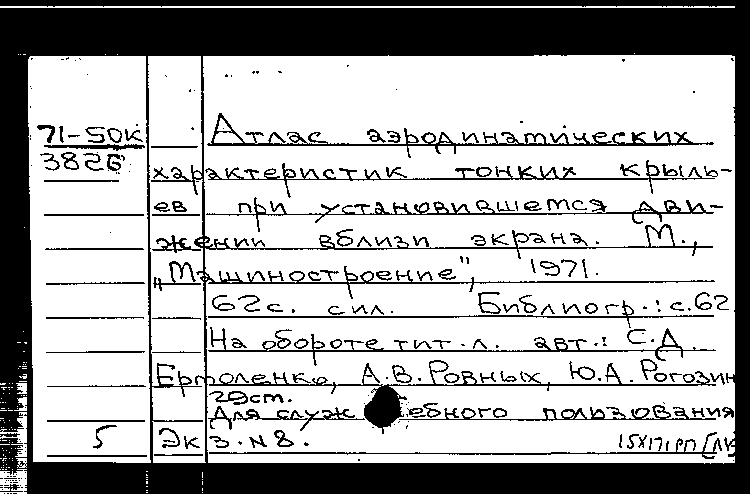 71-50К Атлас аэродинамических
3826 характеристик тонких крыль-
ев при установившемся дви-
жении вблизи экрана. М.,
„Машиностроение", 1971.
62с. с ил. Библиогр.: с.62
На обороте тит.л. авт.: С.Д.
Ермоленко, А.В. Ровных, Ю.А. Рогозин
Для служебного пользования
5 Экз. №8.